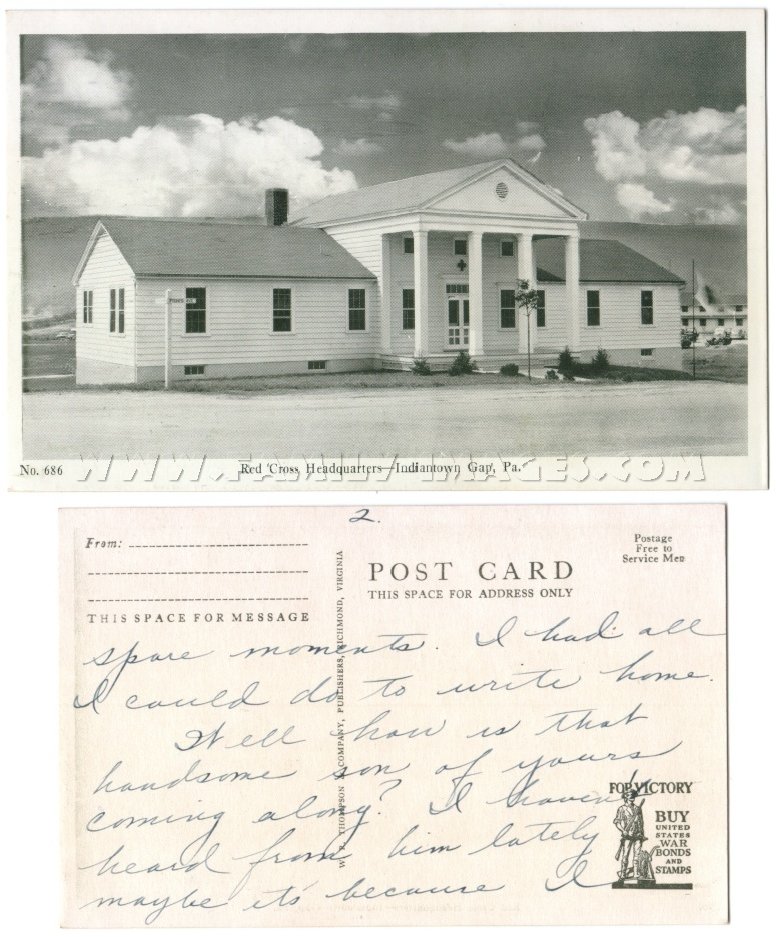 No. 686
Red Cross Headquarters—Indiantown Gap, Pa.
WWW.FAMILY-IMAGES.COM
2.
From:
THIS SPACE FOR MESSAGE
POST CARD
THIS SPACE FOR ADDRESS ONLY
Postage
Free to
Service Men
W. R. THOMPSON & COMPANY, PUBLISHERS, RICHMOND, VIRGINIA
spare moments. I had all
I could do to write home.
Well how is that
handsome son of yours
coming along? I haven't
heard from him lately
maybe it's because I
FOR VICTORY
BUY
UNITED
STATES
WAR
BONDS
AND
STAMPS